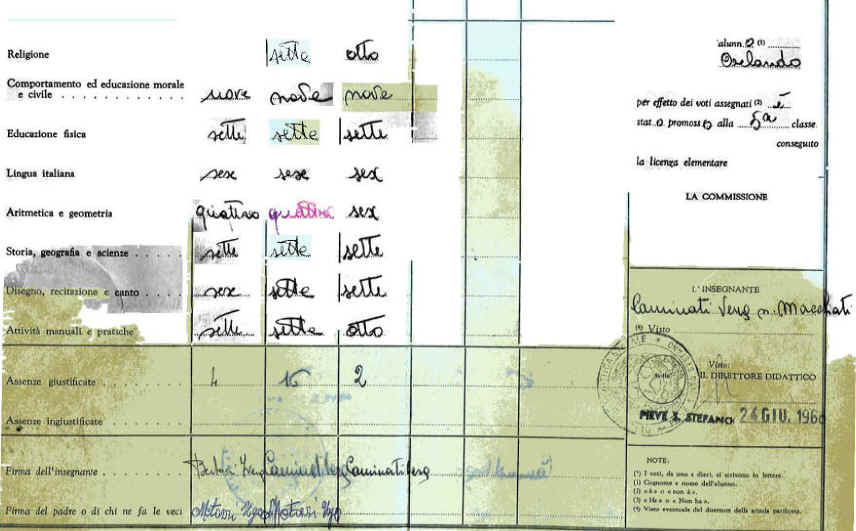 alunn.o (1)
Religione sette otto
Orlando
Comportamento ed educazione morale
e civile . . . . . . . . . . . . nove nove nove
per effetto dei voti assegnati (2) è
Educazione fisica sette sette sette
stat.o promosso alla 5a classe
conseguito
Lingua italiana sex sex sex
la licenza elementare
LA COMMISSIONE
Aritmetica e geometria quattro quattro sex
Storia, geografia e scienze . . . . . sette sette sette
Disegno, recitazione e canto . . . . sex sette sette
L'INSEGNANTE
Caminati
(4) Visto
Attività manuali e pratiche sette sette otto
Visto:
IL DIRETTORE DIDATTICO
Assenze giustificate . . . . . . . 4 16 2
PIEVE S. STEFANO, 24 GIU. 196
Assenze ingiustificate
NOTE:
Firma dell'insegnante Caminati
(*) I voti, da uno a dieci, si scrivono in lettere.
(1) Cognome e nome dell'alunno.
(2) « è » o « non è ».
(3) « Ha » o « Non ha ».
Firma del padre o di chi ne fa le veci
(4) Visto eventuale del direttore della scuola parificata.